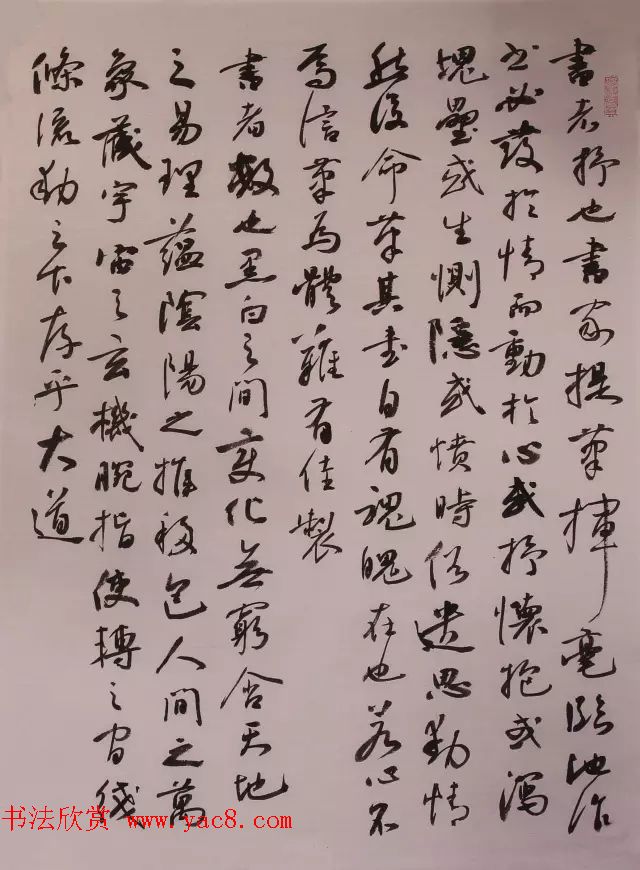 書者抒也書家提筆揮毫臨池作
書必發於情而動於心或抒懷抱或瀉
塊壘或生惻隱或憤時俗遣思動情
然後命筆其書自有魂魄在也若心不
焉信筆為體難有佳製
書者數也黑白之間變化無窮含天地
之易理蘊陰陽之推移包人間之萬
象藏宇宙之玄機腕指使轉之間線
條流動之中存乎大道
书法欣赏 www.yac8.com